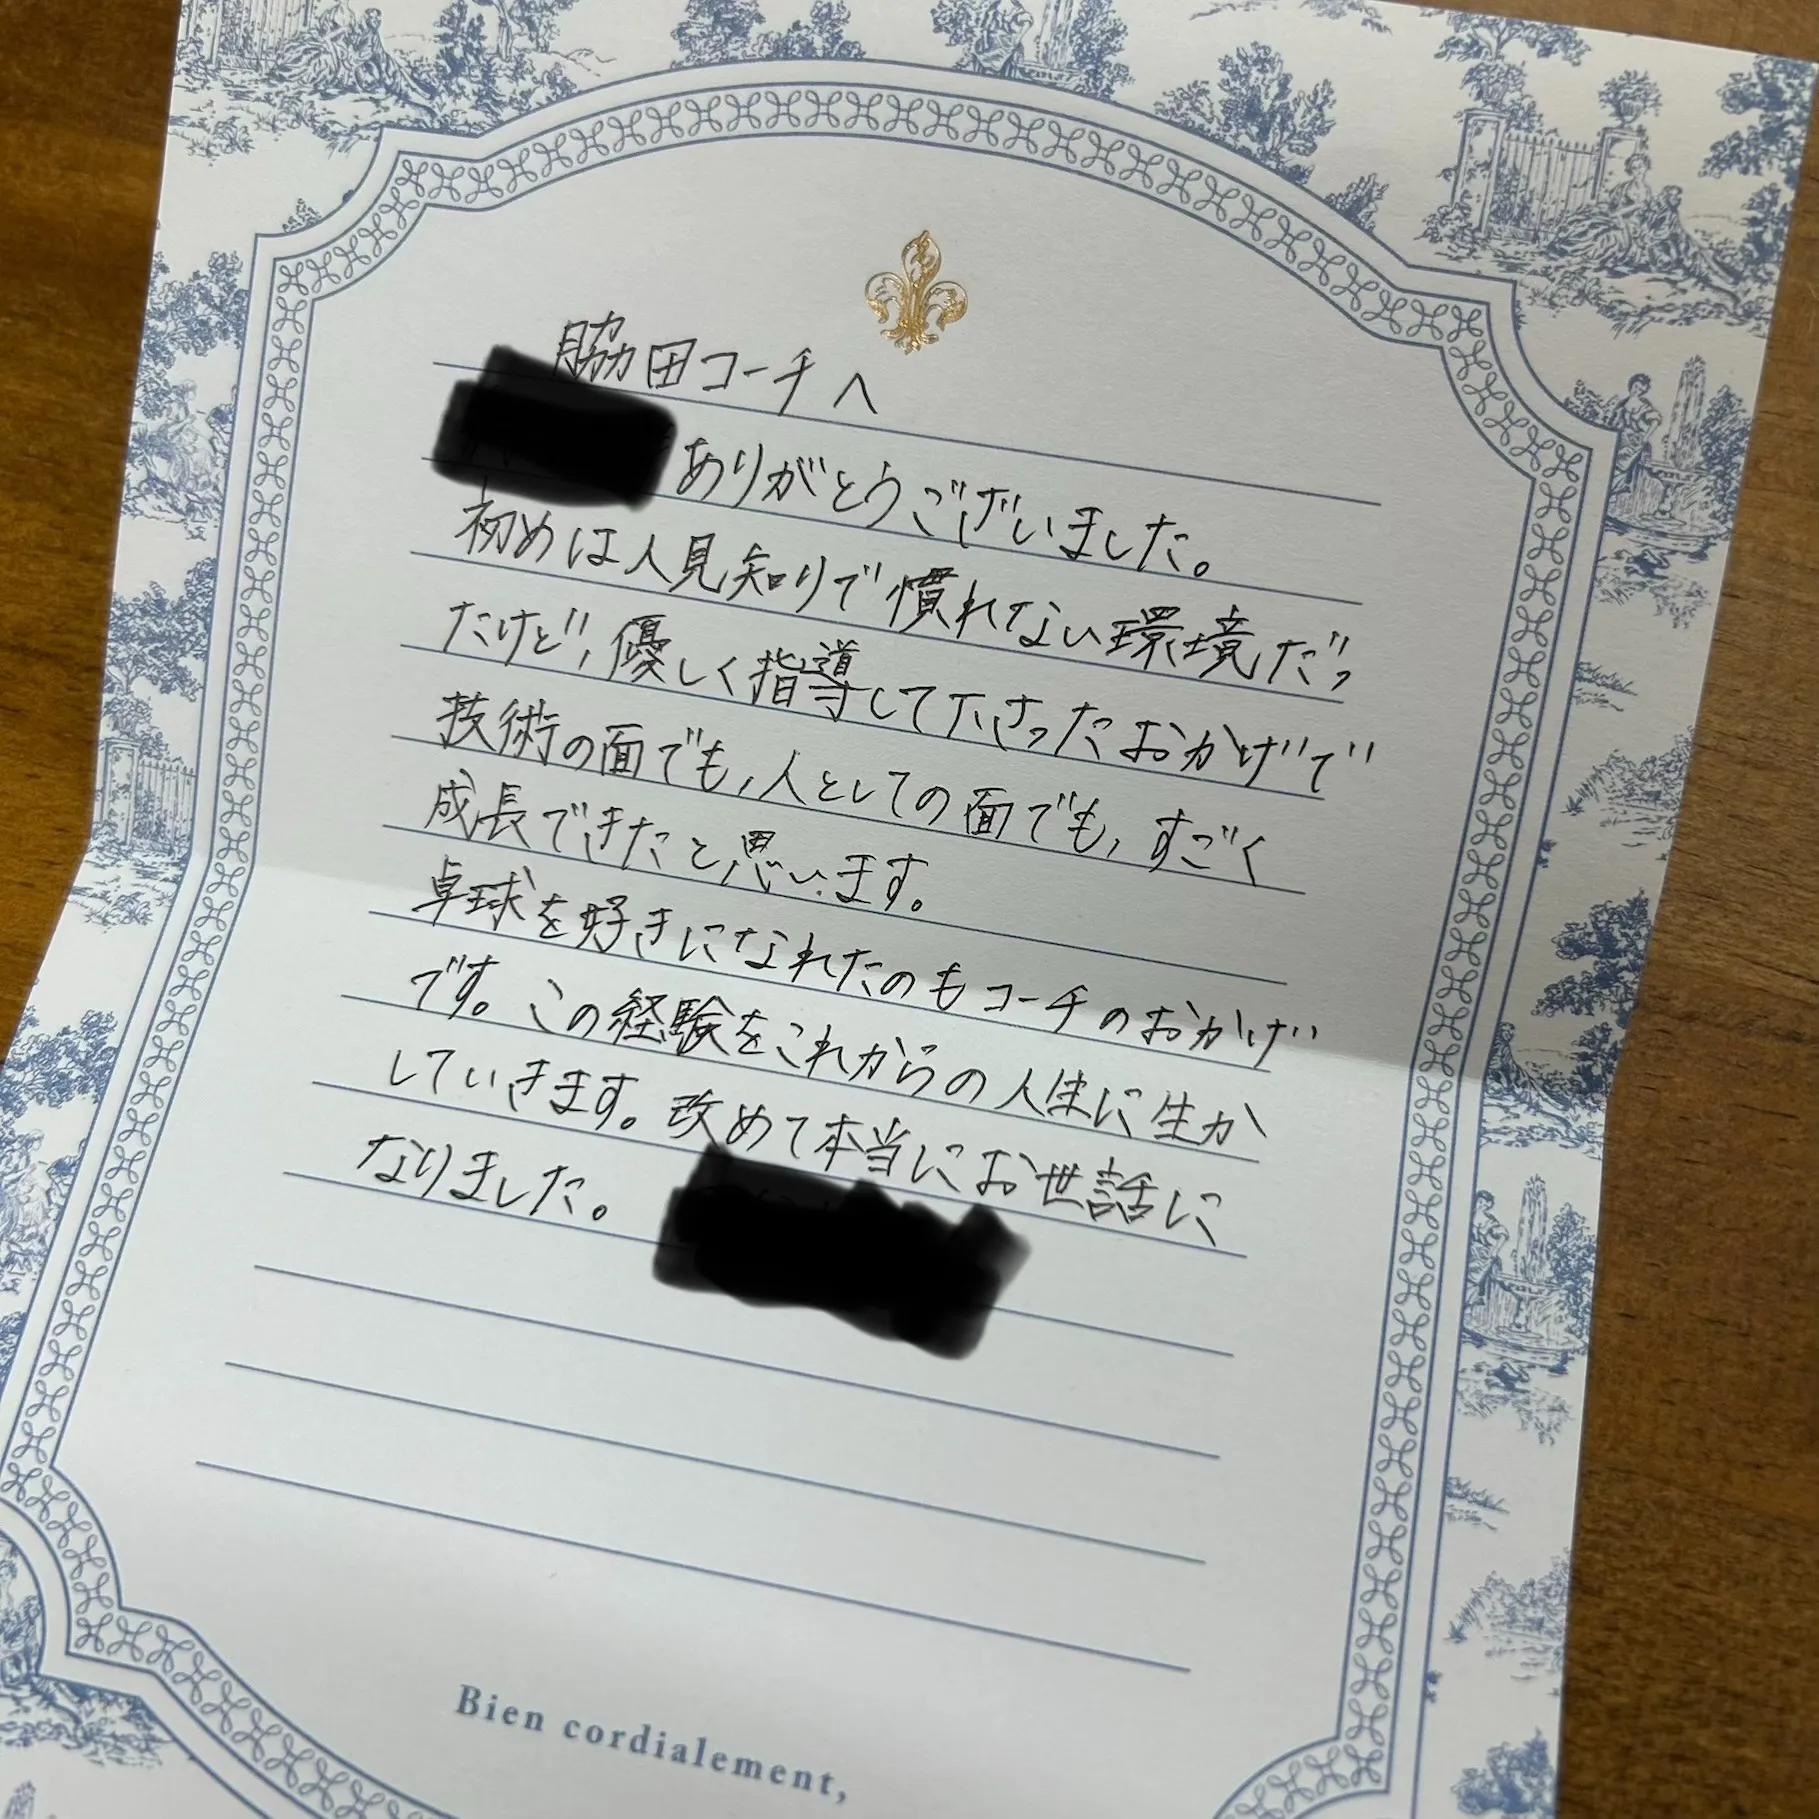 脇田コーチへ
ありがとうございました。
初めは人見知りで慣れない環境だっ
たけど、優しく指導して下さったおかげで
技術の面でも、人としての面でも、すごく
成長できたと思います。
卓球を好きになれたのもコーチのおかげ
です。この経験をこれからの人生に生か
していきます。改めて本当にお世話に
なりました。
Bien cordialement,